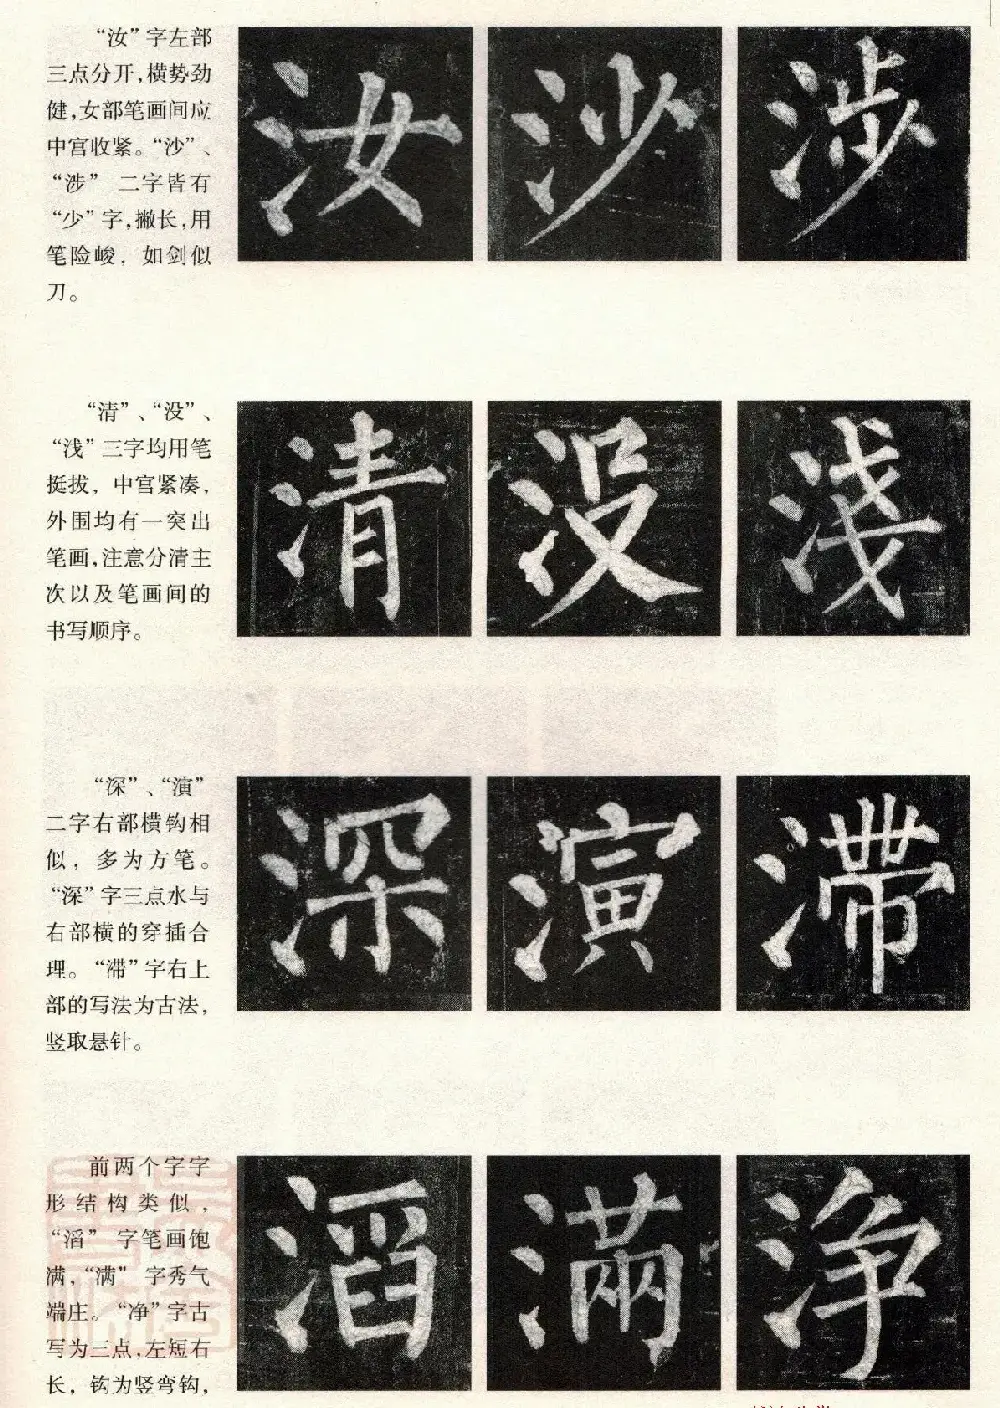 “汝”字左部
三点分开,横势劲
健,女部笔画间应
中宫收紧。“沙”、
“涉”二字皆有
“少”字,撇长,用
笔险峻,如剑似
刀。
汝 沙 涉
“清”、“没”、
“浅”三字均用笔
挺拔,中宫紧凑,
外围均有一突出
笔画,注意分清主
次以及笔画间的
书写顺序。
清 没 淺
“深”、“演”
二字右部横钩相
似,多为方笔。
“深”字三点水与
右部横的穿插合
理。“滞”字右上
部的写法为古法,
竖取悬针。
深 演 滯
前两个字字
形结构类似,
“滔”字笔画饱
满,“满”字秀气
端庄。“净”字古
写为三点,左短右
长,钩为竖弯钩,
滔 滿 浄